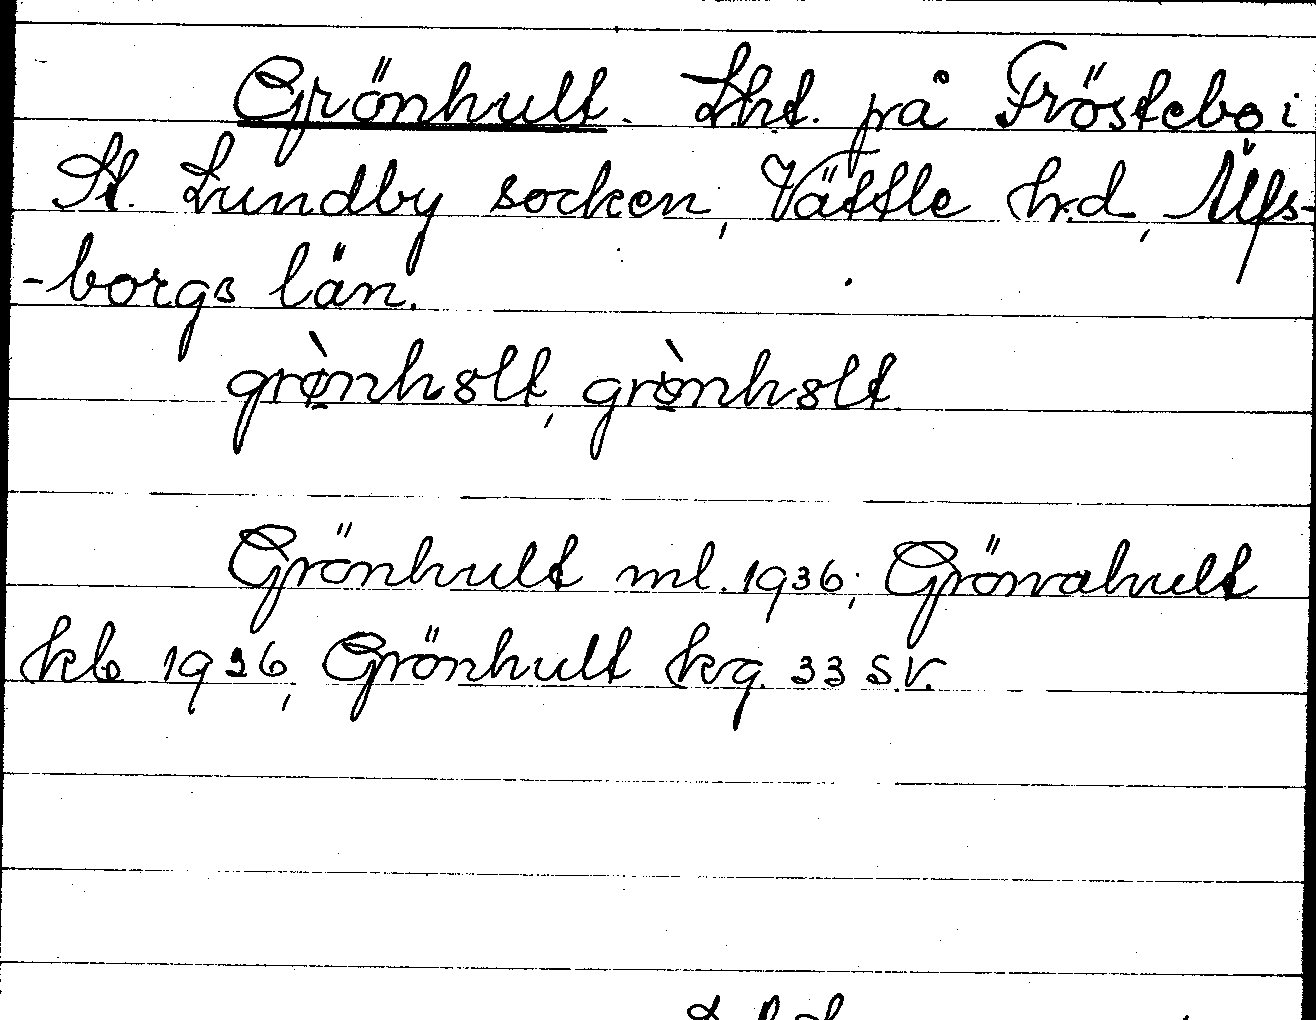 Grönhult. Lht. på Fröstebo i
St. Lundby socken, Vättle hd, Älfs-
-borgs län.
grø̀nhslt, grø̀nhslt.
Grönhult ml. 1936; Grönahult
kb 1936, Grönhult krg. 33 s.v.